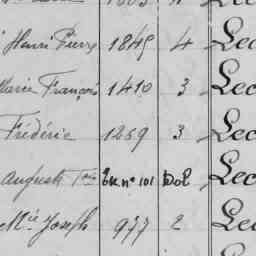 Henri Pierre 1845 4 Lec
Marie François 1410 3 Lec
Frédéric 1259 3 Lec
Auguste Bk n° 101 DOL Lec
Mie Joseph 977 2 Lec